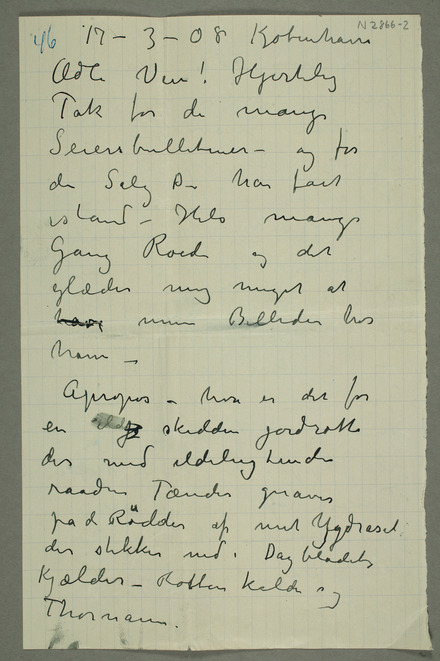 N 2866-2
46
17 – 3 – 08 København
Ædle Ven! Hjertelig
Tak for de mange
Seiersbulletiner – og for
de Salg De har faat
istand – Hils mange
Gang Roede og det
glæder mig meget at
have mine Billeder hos
ham –
Apropos – hva er det for
en skidden jordrotte
der med ildelugtende
raadne Tænder gnaver
paa Rødder af mit Ygdrasel
der stikker ned i Dagbladets
Kjælder – Rotten kalder sig
Thormann.